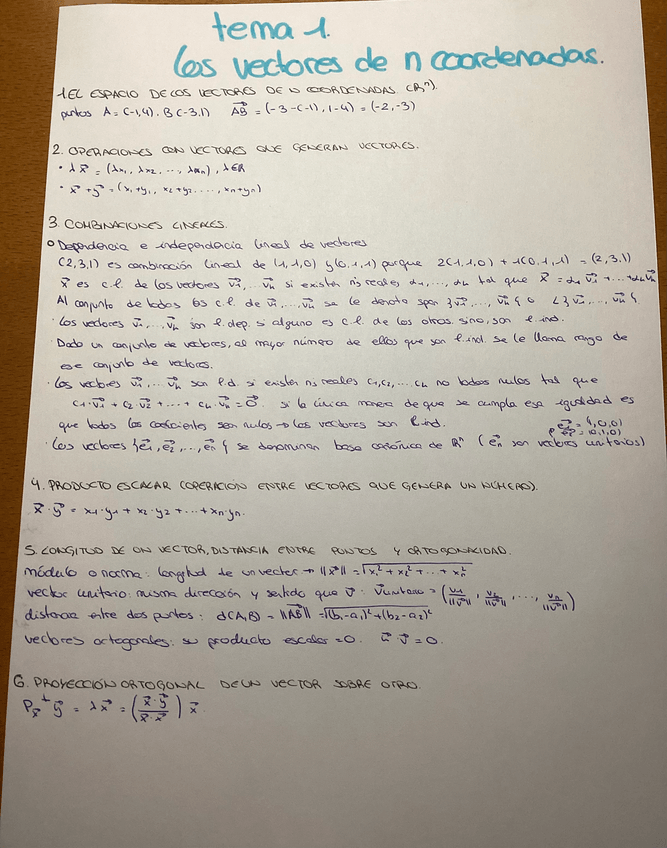 tema 1.
los vectores de n coordenadas.
1. EL ESPACIO DE LOS VECTORES DE N COORDENADAS (Rⁿ).
puntos A = (-1,4), B(-3,1) AB⃗ = (-3-(-1), 1-4) = (-2,-3)
2. OPERACIONES CON VECTORES QUE GENERAN VECTORES.
• λx⃗ = (λx₁, λx₂, ..., λxn), λ∈R
• x⃗+y⃗ = (x₁+y₁, x₂+y₂, ..., xn+yn)
3. COMBINACIONES LINEALES.
o Dependencia e independencia lineal de vectores
(2,3,1) es combinación lineal de (1,1,0) y (0,1,1) porque 2(1,1,0) + 1(0,1,1) = (2,3,1)
x⃗ es c.l. de los vectores v₁⃗, ... vn⃗ si existen nºs reales α₁, ..., αn tal que x⃗ = α₁ v₁⃗ + ... + αn vn⃗
Al conjunto de todos los c.l. de v₁⃗, ..., vn⃗ se le denota span {v₁⃗, ..., vn⃗} o <{v₁⃗, ..., vn⃗}
· Los vectores v₁⃗, ... vn⃗ son l.dep. si alguno es c.l. de los otros sino, son l.ind.
· Dado un conjunto de vectores, al mayor número de ellos que son l.ind. se le llama rango de
ese conjunto de vectores.
· Los vectores v₁⃗, ... vn⃗ son l.d. si existen nºs reales c₁, c₂, ... cn no todos nulos tal que
c₁·v₁⃗ + c₂·v₂⃗ + ... + cn·vn⃗ = 0⃗. si la única manera de que se cumpla esa igualdad es
que todos los coeficientes sean nulos → los vectores son l.ind.
e₁⃗ = (1,0,0)
e₂⃗ = (0,1,0)
· Los vectores {e₁⃗, e₂⃗, ..., en⃗} se denominan base canónica de Rⁿ (en⃗ son vectores unitarios)
4. PRODUCTO ESCALAR (OPERACIÓN ENTRE VECTORES QUE GENERA UN NÚMERO).
x⃗·y⃗ = x₁·y₁ + x₂·y₂ + ... + xn·yn.
5. LONGITUD DE UN VECTOR, DISTANCIA ENTRE PUNTOS Y ORTOGONALIDAD.
módulo o norma: longitud de un vector → ||x⃗|| = √(x₁² + x₂² + ... + xn²)
vector unitario: misma dirección y sentido que v⃗: v⃗unitario = (v₁/||v⃗||, v₂/||v⃗||, ..., vn/||v⃗||)
distancia entre dos puntos: d(A,B) = ||AB⃗|| = √((b₁-a₁)² + (b₂-a₂)²)
vectores ortogonales: su producto escalar = 0. u⃗ v⃗ = 0.
6. PROYECCIÓN ORTOGONAL DE UN VECTOR SOBRE OTRO.
Px⃗^⊥ y⃗ = λx⃗ = (x⃗·y⃗ / x⃗·x⃗) x⃗.